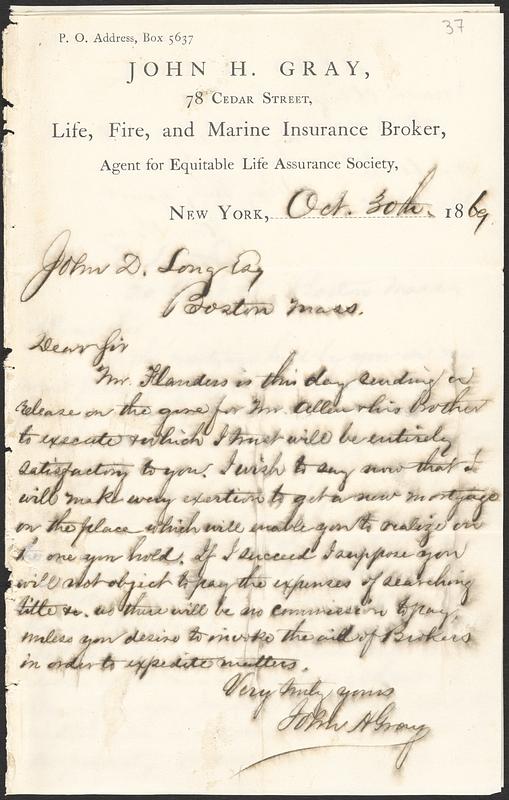 37
P. O. Address, Box 5637
JOHN H. GRAY,
78 Cedar Street,
Life, Fire, and Marine Insurance Broker,
Agent for Equitable Life Assurance Society,
New York, Oct. 30th. 1869
John D. Long Esq
Boston Mass.
Dear Sir
Mr. Flanders is this day sending a
release on the gore for Mr. Allen & his brother
to execute & which I trust will be entirely
satisfactory to you. I wish to say now that I
will make every exertion to get a new mortgage
on the place which will enable you to realize on
the one you hold. If I succeed I suppose you
will not object to pay the expenses of searching
title &c. as there will be no commission to pay,
unless you desire to invoke the aid of Brokers
in order to expedite matters.
Very truly yours
John H Gray